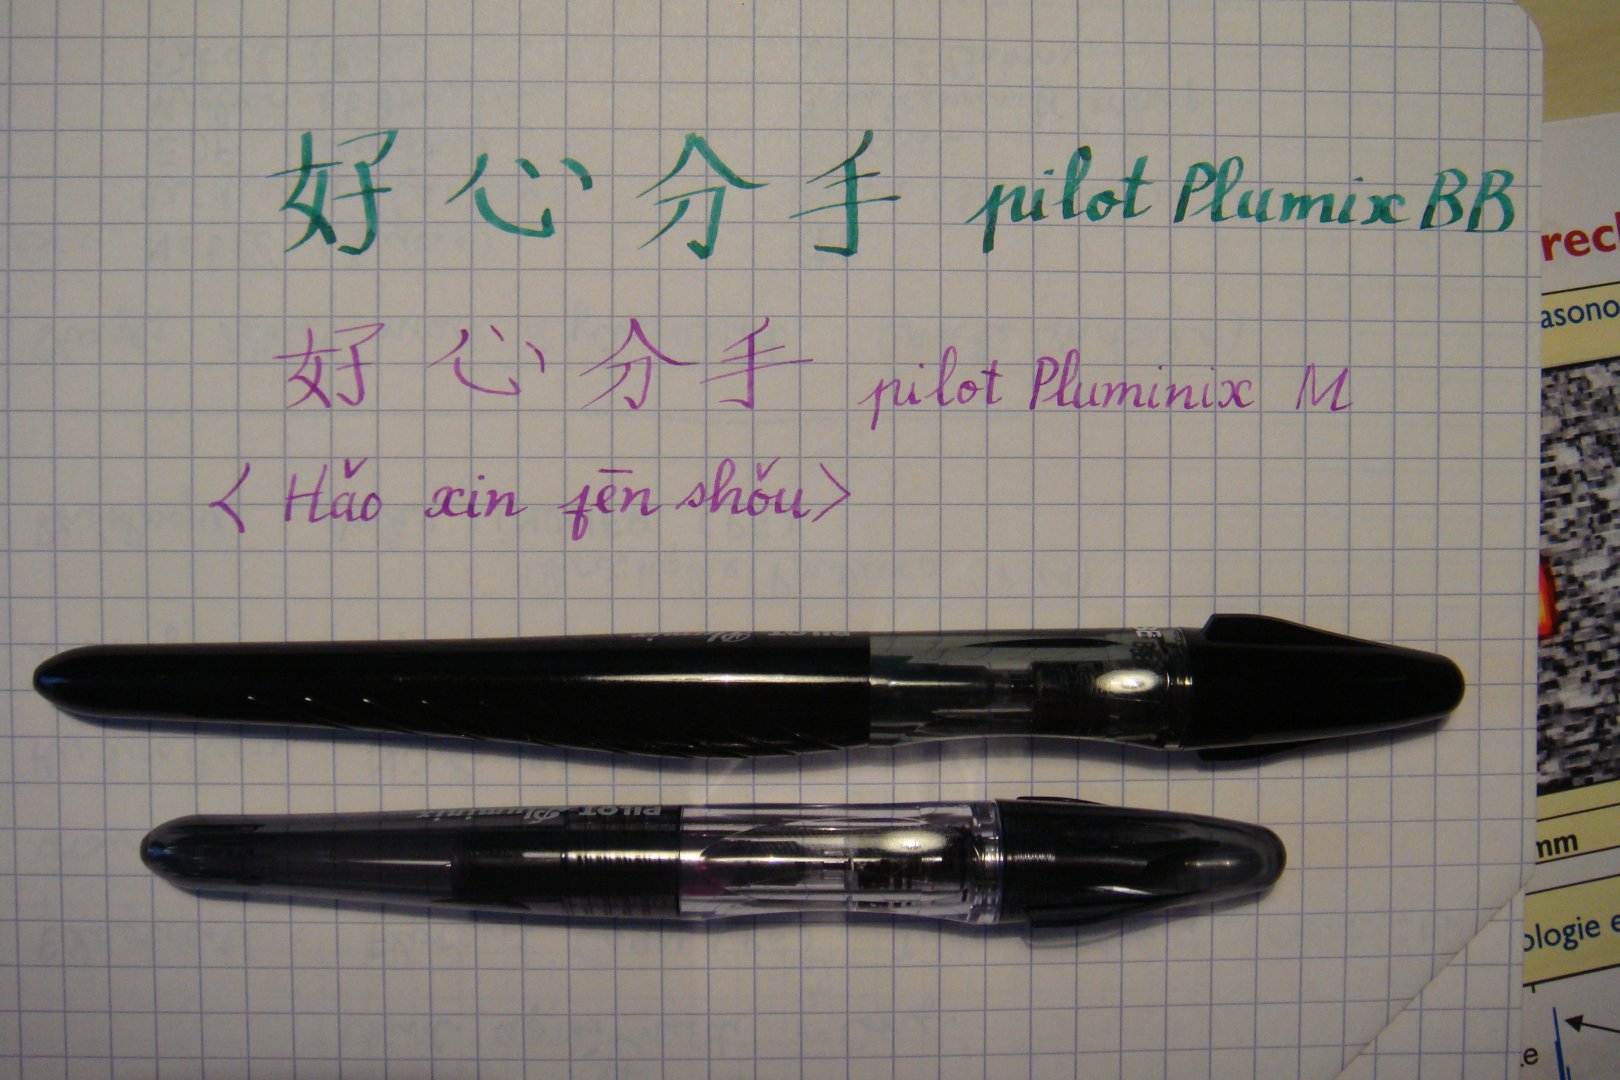 好心分手 pilot Plumix BB
好心分手 pilot Pluminix M
< Hǎo xin fēn shǒu >
PILOT Plumix
PILOT Pluminix
asono
mm
ologie e